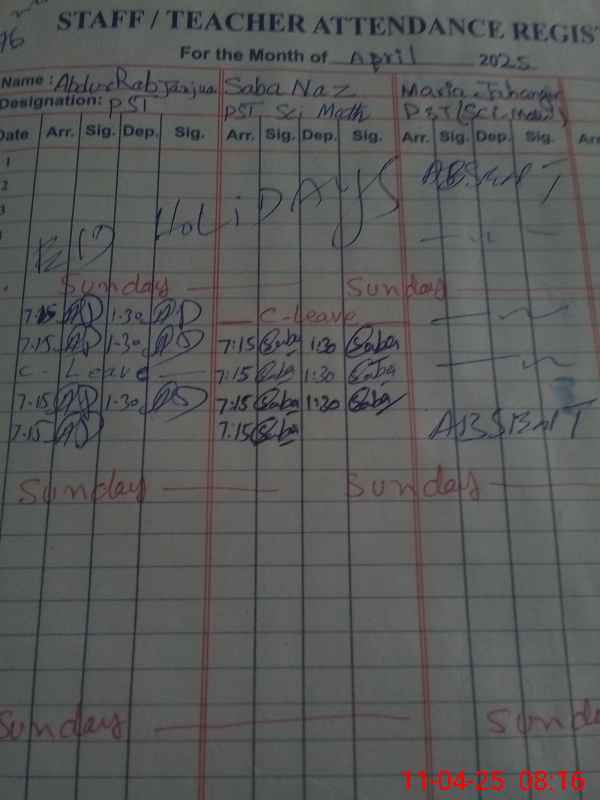 STAFF / TEACHER ATTENDANCE REGIS
For the Month of April 2025
Name : Abdur Rab Janjua Saba Naz Maria Jahangir
Designation: PST PST Sci Math PST (Sci Math)
Date Arr. Sig. Dep. Sig. Arr. Sig. Dep. Sig. Arr. Sig. Dep. Sig. Arr
1 ABSENT
2 HOLiDAYS
3
Sunday Sunday
7.15 1.30 C-Leave
7.15 1.30 7:15 Saba 1:30 Saba
C - Leave 7:15 Saba 1:30 Saba
7.15 1.30 7:15 Saba 1:30 Saba
7.15 7:15 Saba ABSENT
Sunday Sunday
Sunday Sunda
11-04-25 08:16